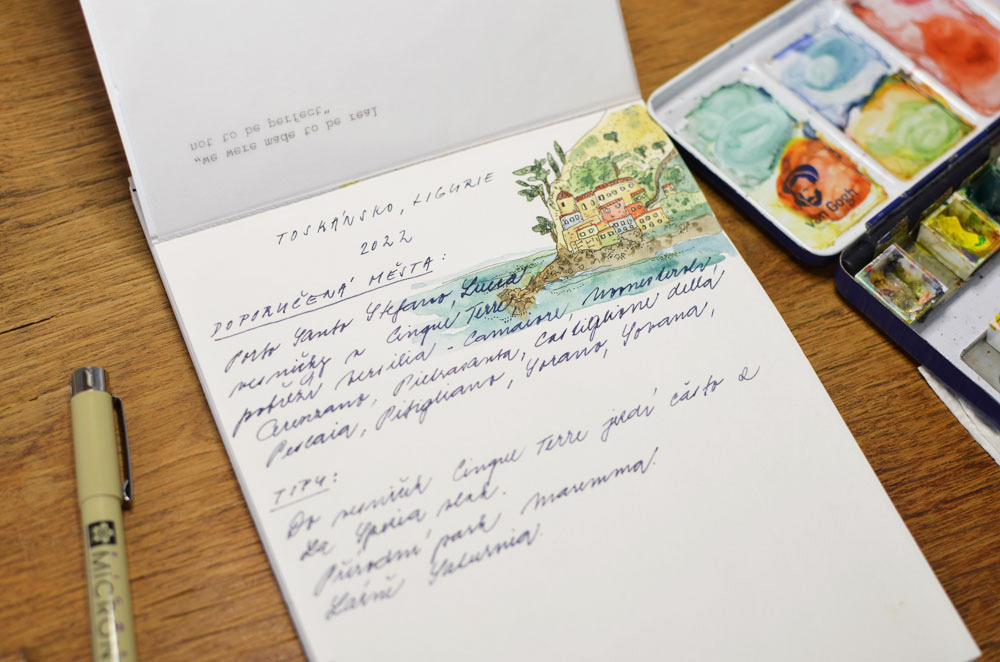 "we were made to be real
not to be perfect"
TOSKÁNSKO, LIGURIE
2022
DOPORUČENÁ MĚSTA:
Porto Santo Stefano, Lucca
vesničky v Cinque Terre
pobřeží Versilia - Camaiore,
Cerenzano, Pietrasanta, Castiglione della
Pescaia, Pitigliano, Sorano, Sovana,
TIPY:
Do vesniček Cinque Terre jezdí často z
La Spezia vlak.
Přírodní park Maremma.
Lázně Saturnia.
MICRON
Gogh